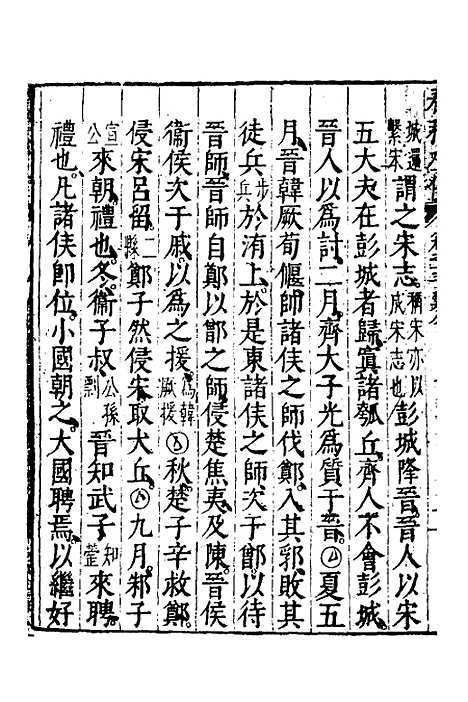 城還繫宋謂之宋志稱宋亦以成宋志也彭城降晉晉人以宋
五大夫在彭城者歸寘諸瓠丘齊人不會彭城
晉人以為討二月齊大子光為質于晉○夏五
月晉韓厥荀偃帥諸侯之師伐鄭入其郛敗其
徒兵步兵於洧上於是東諸侯之師次于鄫以待
晉師晉師自鄭以鄫之師侵楚焦夷及陳晉侯
衞侯次于戚以為之援為韓厥援○秋楚子辛救鄭
侵宋呂留二縣鄭子然侵宋取犬丘○九月邾子
宣公來朝禮也冬衞子叔公孫剽晉知武子知罃來聘
禮也凡諸侯即位小國朝之大國聘焉以繼好